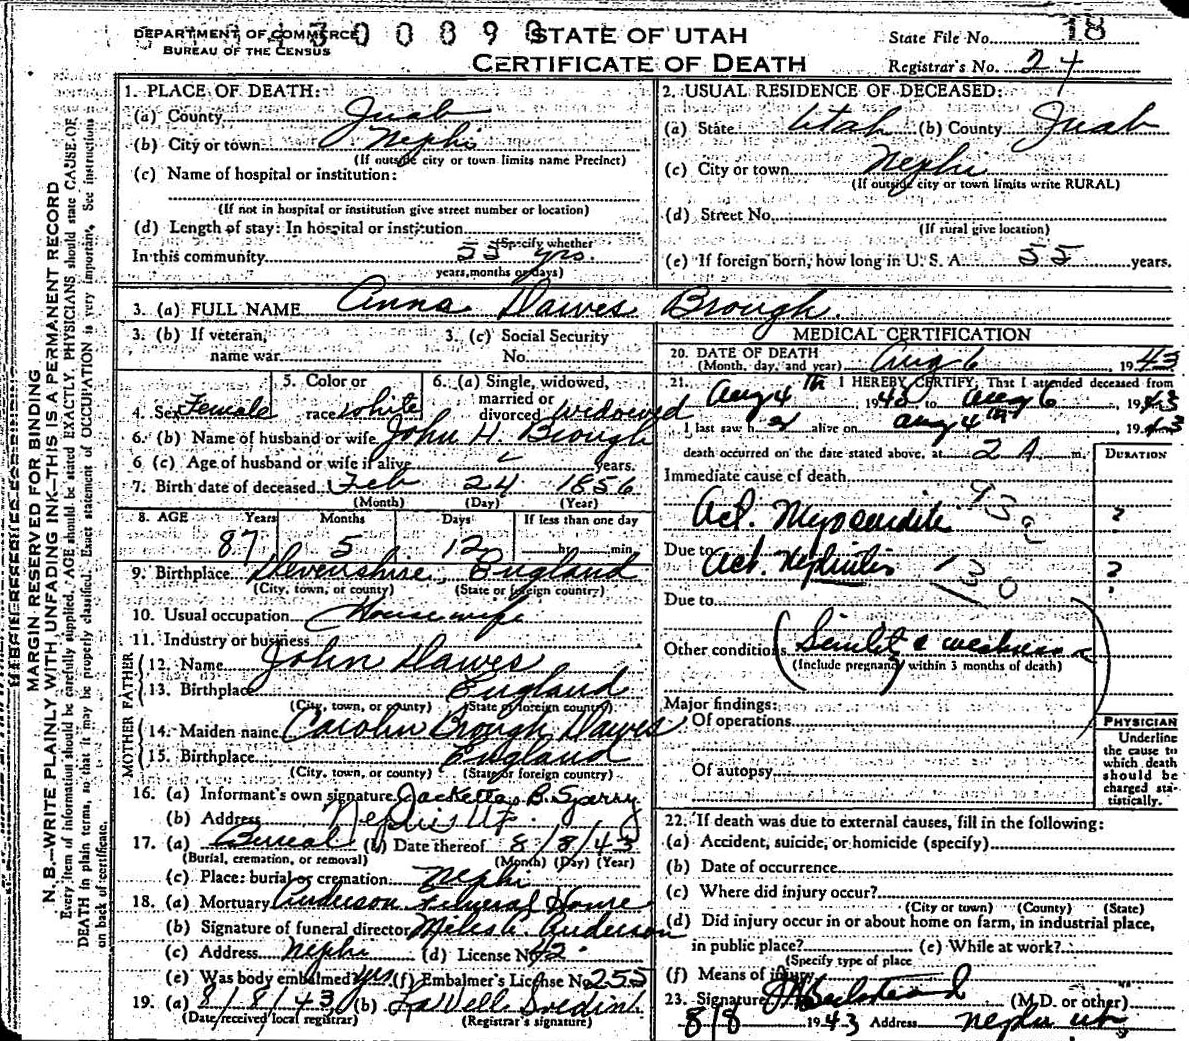 DEPARTMENT OF COMMERCE
BUREAU OF THE CENSUS
STATE OF UTAH
CERTIFICATE OF DEATH
State File No. 18
Registrar's No. 24
MARGIN RESERVED FOR BINDING
N. B.—WRITE PLAINLY, WITH UNFADING INK—THIS IS A PERMANENT RECORD
Every item of information should be carefully supplied. AGE should be stated EXACTLY. PHYSICIANS should state CAUSE OF
DEATH in plain terms, so that it may be properly classified. Exact statement of OCCUPATION is very important. See instructions
on back of certificate.
1. PLACE OF DEATH:
(a) County Juab
(b) City or town Nephi
(If outside city or town limits name Precinct)
(c) Name of hospital or institution:
(If not in hospital or institution give street number or location)
(d) Length of stay: In hospital or institution
(Specify whether
In this community 55 yrs.
years, months or days)
2. USUAL RESIDENCE OF DECEASED:
(a) State Utah (b) County Juab
(c) City or town Nephi
(If outside city or town limits write RURAL)
(d) Street No.
(If rural give location)
(e) If foreign born, how long in U. S. A. 55 years.
3. (a) FULL NAME Anna Dawes Brough.
3. (b) If veteran,
name war
3. (c) Social Security
No.
4. Sex Female
5. Color or
race white
6. (a) Single, widowed,
married or
divorced widowed
6. (b) Name of husband or wife John H. Brough
6 (c) Age of husband or wife if alive years.
7. Birth date of deceased Feb 24 1856
(Month) (Day) (Year)
8. AGE Years Months Days If less than one day
87 5 12 hr. min.
9. Birthplace Devenshire, England
(City, town, or county) (State or foreign country)
10. Usual occupation House wife
11. Industry or business
FATHER
12. Name John Dawes
13. Birthplace England
(City, town, or county) (State or foreign country)
MOTHER
14. Maiden name Carolin Brough Dawes
15. Birthplace England
(City, town, or county) (State or foreign country)
16. (a) Informant's own signature Jacketta B. Sperry
(b) Address Nephi Ut.
17. (a) Bureal (b) Date thereof 8/8/43
(Burial, cremation, or removal) (Month) (Day) (Year)
(c) Place: burial or cremation Nephi
18. (a) Mortuary Anderson Funeral Home
(b) Signature of funeral director Miles A. Anderson
(c) Address Nephi (d) License No. 42
(e) Was body embalmed yes (f) Embalmer's License No. 255
19. (a) 8/8/43 (b) LaVelle
(Date received local registrar) (Registrar's signature)
MEDICAL CERTIFICATION
20. DATE OF DEATH
(Month, day, and year) Aug 6, 1943
21. I HEREBY CERTIFY, That I attended deceased from
Aug 4th 1940 to Aug 6, 1943
I last saw her alive on Aug 4th 1943
death occurred on the date stated above, at 2 A. m.
DURATION
Immediate cause of death
Act. Myocardite ?
Due to Act. Nephritis ?
130
Due to
Other conditions (Senility & weakness)
(Include pregnancy within 3 months of death)
Major findings:
Of operations
Of autopsy
PHYSICIAN
Underline
the cause to
which death
should be
charged sta-
tistically.
22. If death was due to external causes, fill in the following:
(a) Accident, suicide, or homicide (specify)
(b) Date of occurrence
(c) Where did injury occur?
(City or town) (County) (State)
(d) Did injury occur in or about home on farm, in industrial place,
in public place? (e) While at work?
(Specify type of place
(f) Means of injury
23. Signature (M.D. or other)
8/8 1943 Address Nephi Ut